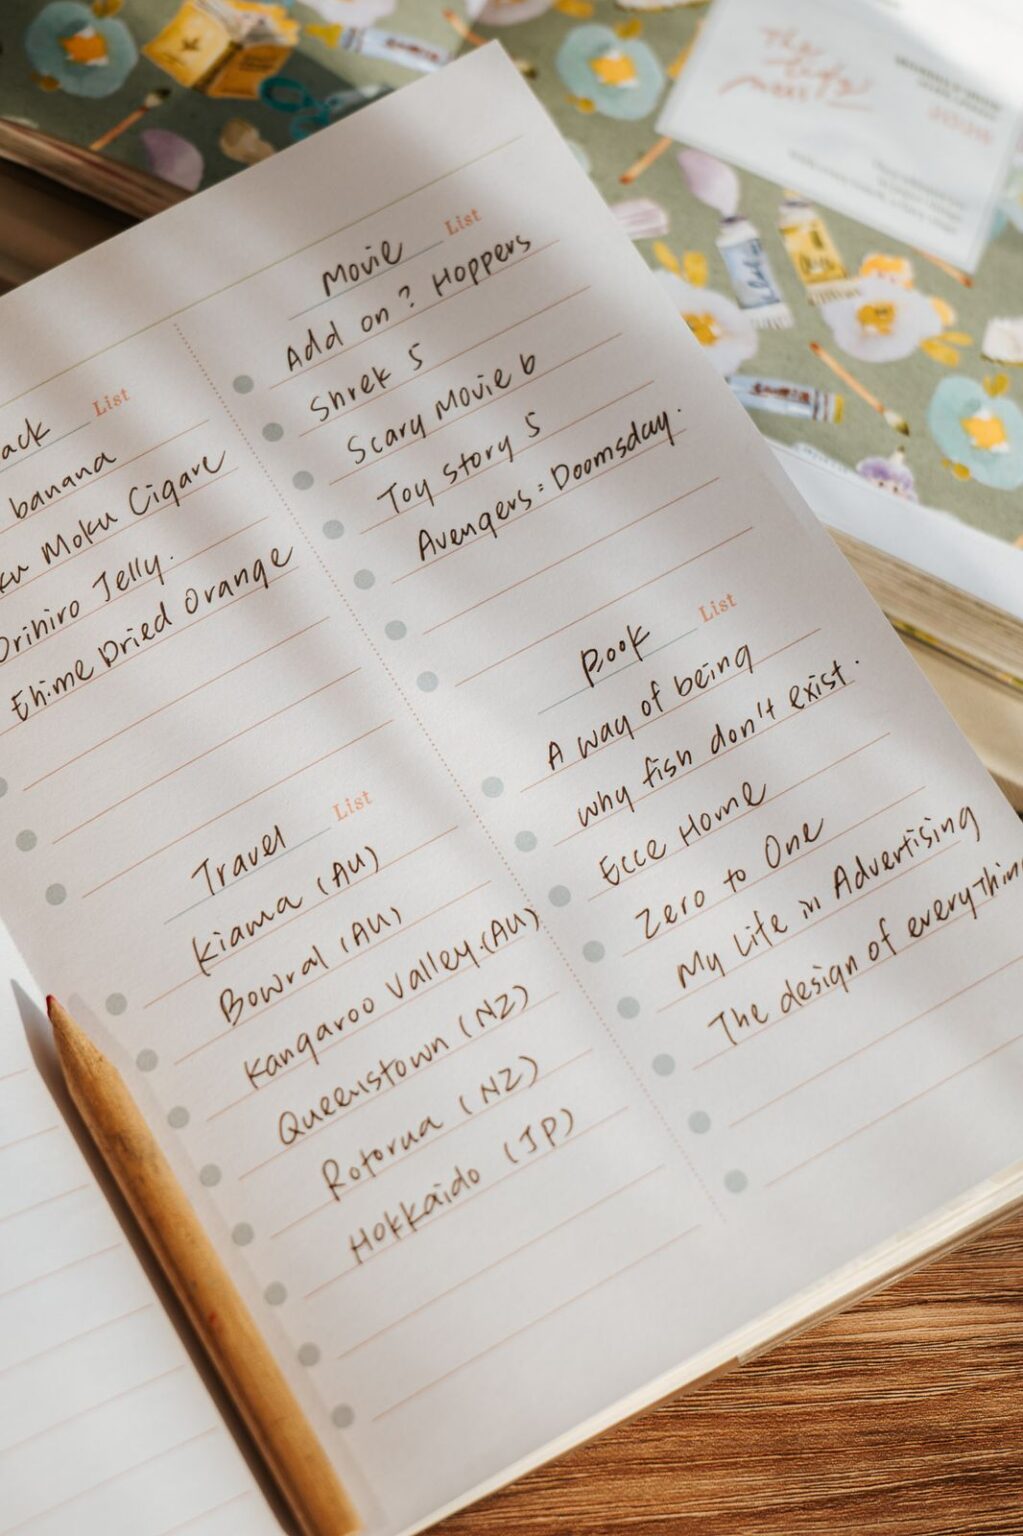 List
banana
Moku Cigare
Orihiro Jelly.
Ehime Dried Orange
Travel List
Kiama (AU)
Bowral (AU)
Kangaroo Valley (AU)
Queenstown (NZ)
Rotorua (NZ)
Hokkaido (JP)
Movie List
Add on? Hoppers
Shrek 5
Scary Movie 6
Toy story 5
Avengers: Doomsday.
Book List
A way of being
why fish don't exist.
Ecce Home
Zero to One
My Life in Advertising
The design of everything